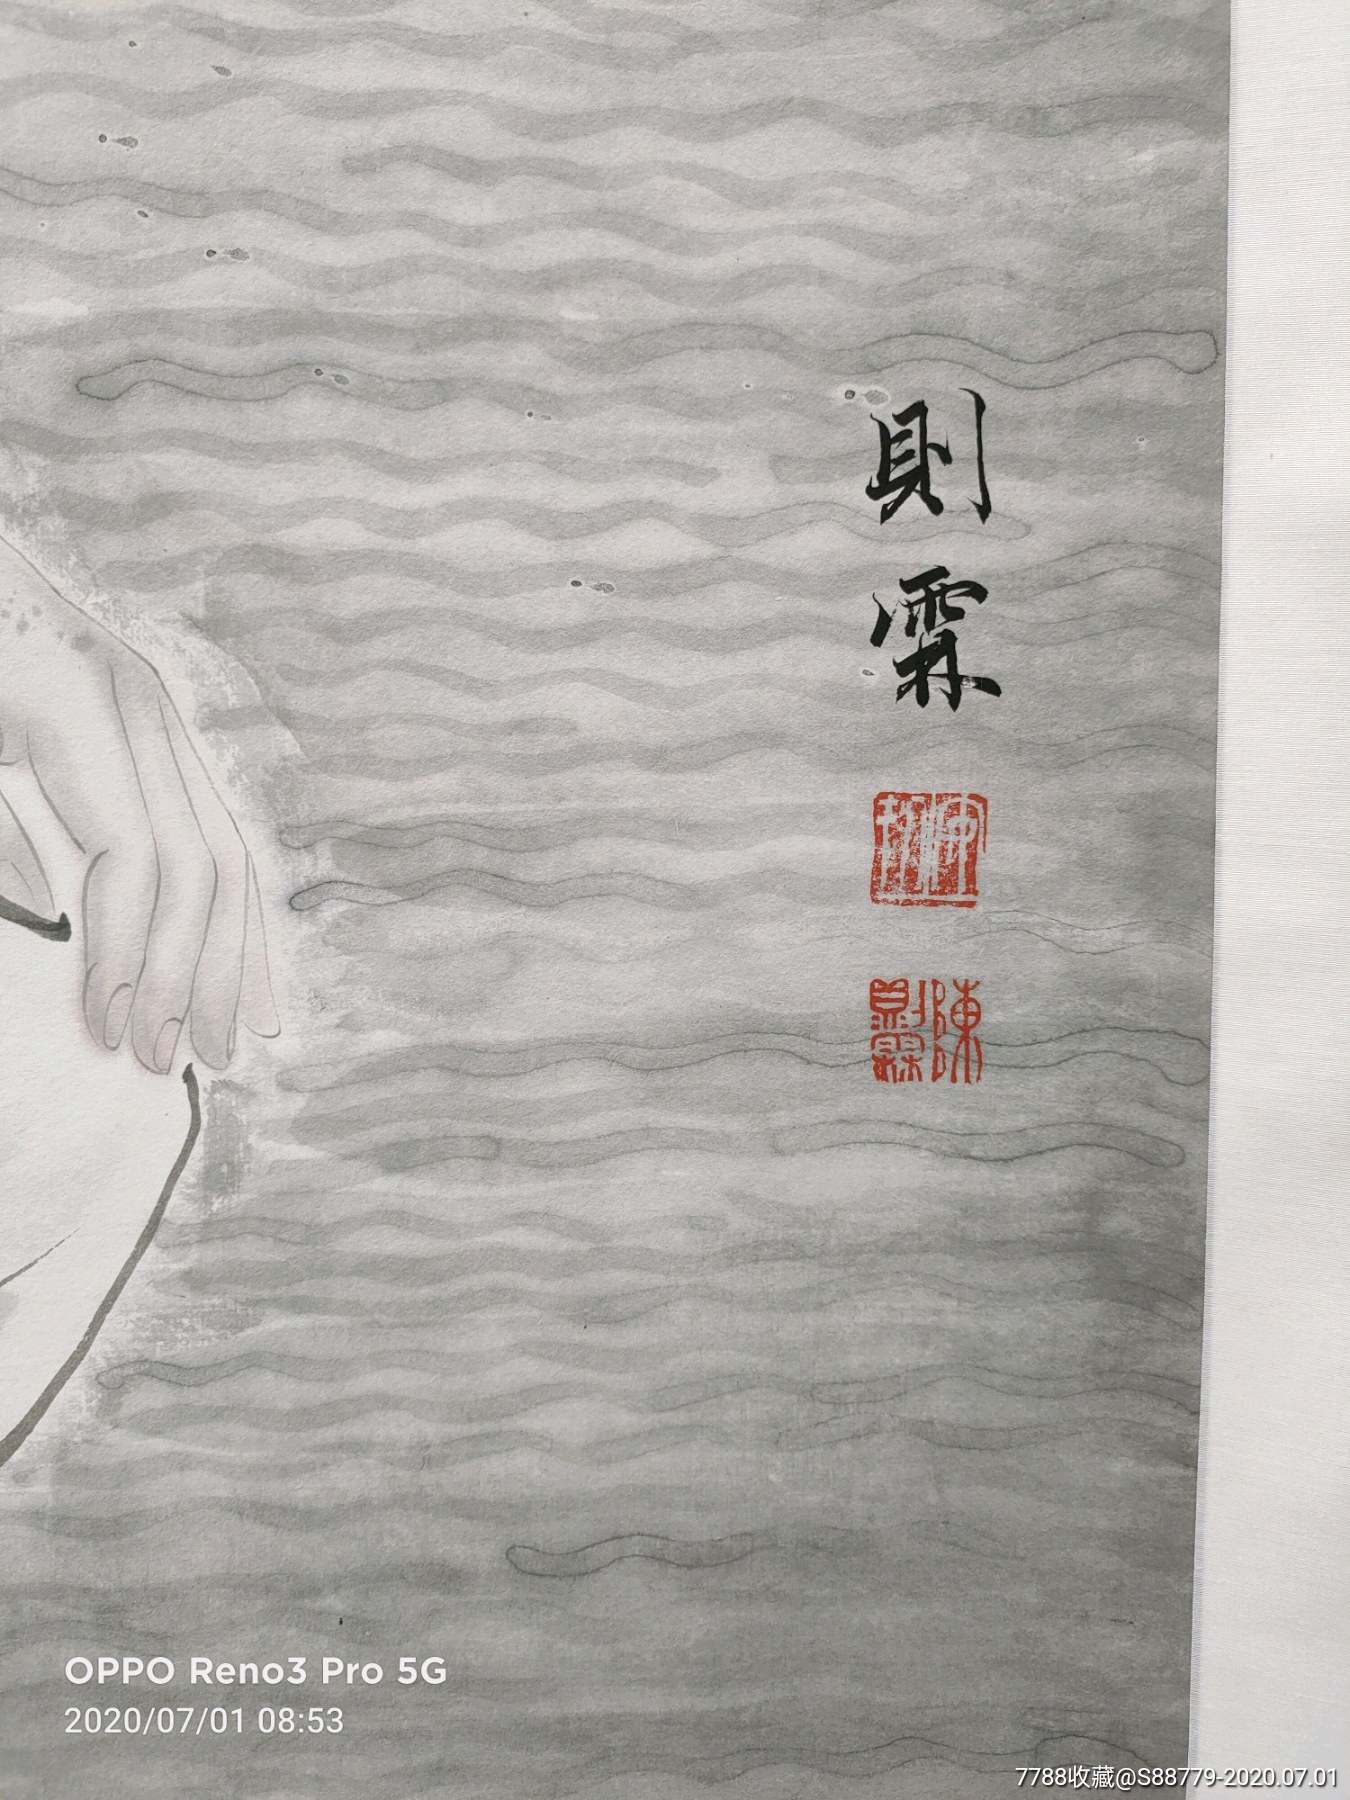 則霖
陳則霖
OPPO Reno3 Pro 5G
2020/07/01 08:53
7788收藏@S88779-2020.07.01